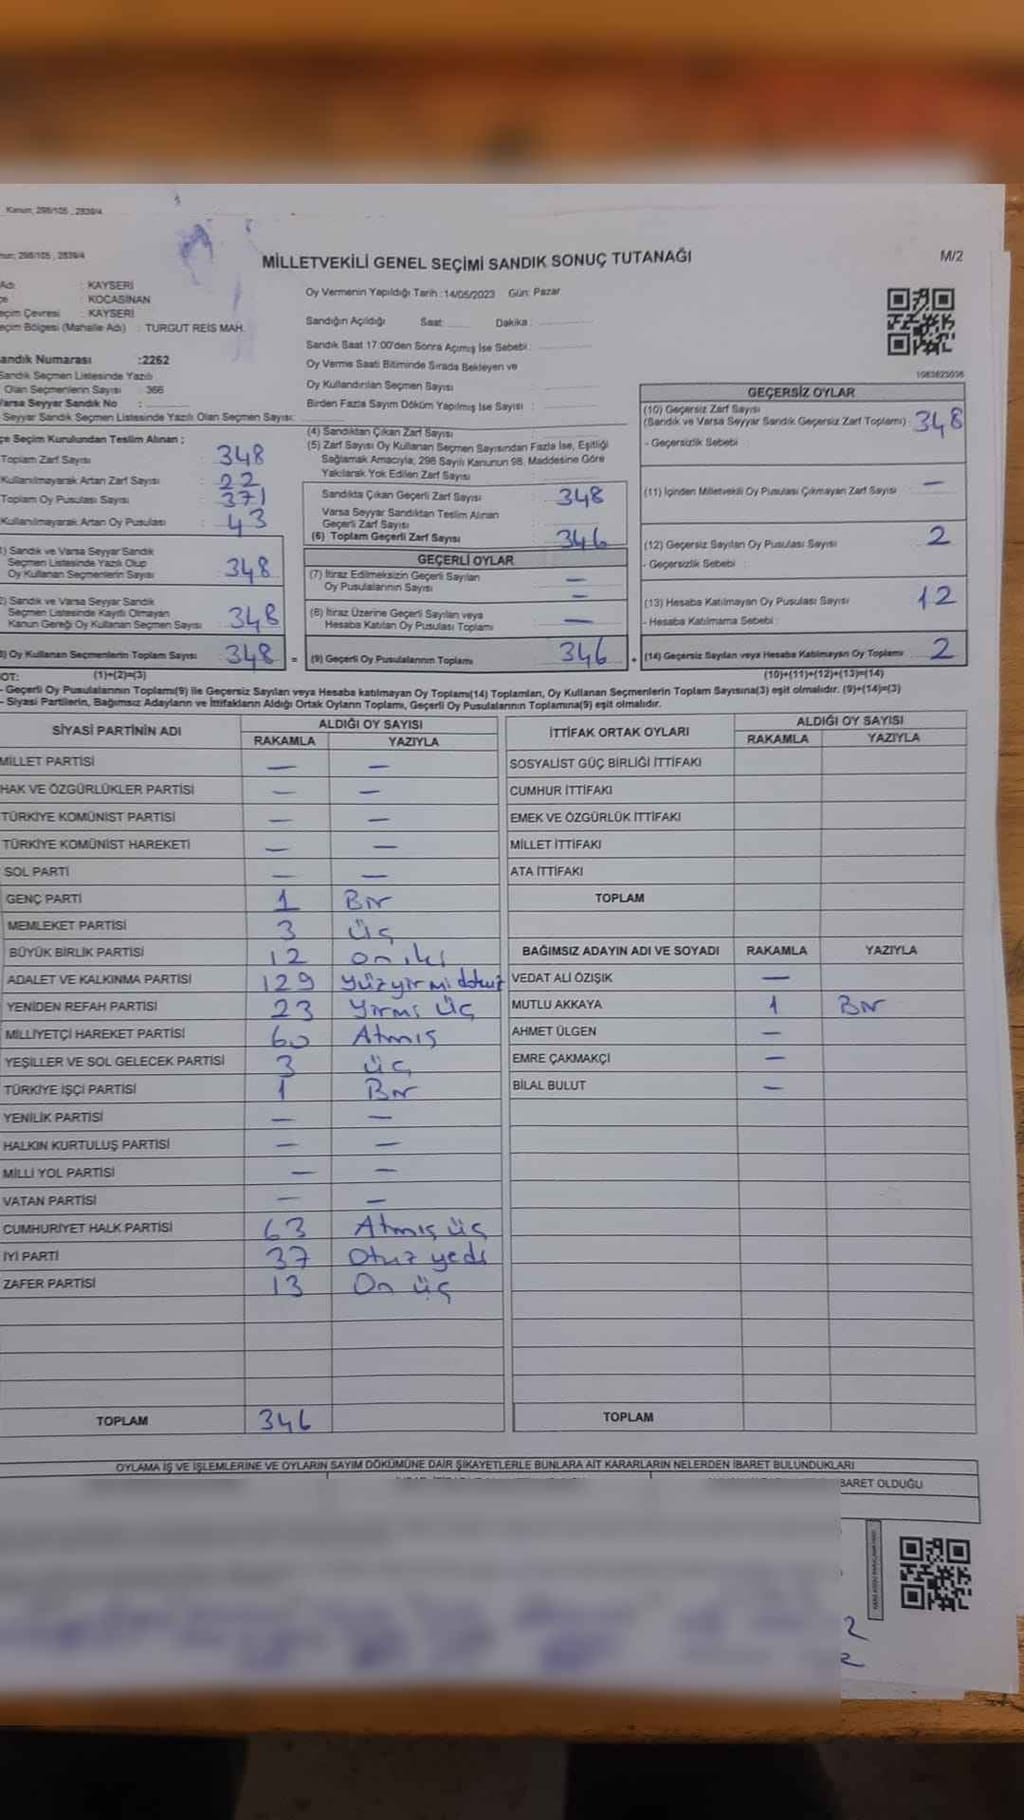 Kanun; 298/105 , 2839/4
298/105 , 2839/4
MİLLETVEKİLİ GENEL SEÇİMİ SANDIK SONUÇ TUTANAĞI
M/2
Adı : KAYSERİ
çe : KOCASİNAN
eçim Çevresi : KAYSERİ
eçim Bölgesi (Mahalle Adı) : TURGUT REİS MAH.
andık Numarası :2262
Sandık Seçmen Listesinde Yazılı
Olan Seçmenlerin Sayısı : 366
Varsa Seyyar Sandık No :
Seyyar Sandık Seçmen Listesinde Yazılı Olan Seçmen Sayısı:
çe Seçim Kurulundan Teslim Alınan ;
Toplam Zarf Sayısı : 348
Kullanılmayarak Artan Zarf Sayısı : 22
Toplam Oy Pusulası Sayısı : 371
Kullanılmayarak Artan Oy Pusulası : 43
1) Sandık ve Varsa Seyyar Sandık
Seçmen Listesinde Yazılı Olup
Oy Kullanan Seçmenlerin Sayısı : 348
2) Sandık ve Varsa Seyyar Sandık
Seçmen Listesinde Kayıtlı Olmayan
Kanun Gereği Oy Kullanan Seçmen Sayısı : 348
3) Oy Kullanan Seçmenlerin Toplam Sayısı : 348
(1)+(2)=(3)
Oy Vermenin Yapıldığı Tarih :14/05/2023 Gün: Pazar
Sandığın Açıldığı Saat: Dakika :
Sandık Saat 17:00'den Sonra Açımış İse Sebebi :
Oy Verme Saati Bitiminde Sırada Bekleyen ve
Oy Kullandırılan Seçmen Sayısı :
Birden Fazla Sayım Döküm Yapılmış İse Sayısı :
(4) Sandıktan Çıkan Zarf Sayısı :
(5) Zarf Sayısı Oy Kullanan Seçmen Sayısından Fazla İse, Eşitliği
Sağlamak Amacıyla; 298 Sayılı Kanunun 98. Maddesine Göre
Yakılarak Yok Edilen Zarf Sayısı :
Sandıkta Çıkan Geçerli Zarf Sayısı : 348
Varsa Seyyar Sandıktan Teslim Alınan
Geçerli Zarf Sayısı :
(6) Toplam Geçerli Zarf Sayısı : 346
GEÇERLİ OYLAR
(7) İtiraz Edilmeksizin Geçerli Sayılan
Oy Pusulalarının Sayısı : —
—
(8) İtiraz Üzerine Geçerli Sayılan veya
Hesaba Katılan Oy Pusulası Toplamı : —
= (9) Geçerli Oy Pusulalarının Toplamı : 346 +
1083623036
GEÇERSİZ OYLAR
(10) Geçersiz Zarf Sayısı
(Sandık ve Varsa Seyyar Sandık Geçersiz Zarf Toplamı) : 348
- Geçersizlik Sebebi :
(11) İçinden Milletvekili Oy Pusulası Çıkmayan Zarf Sayısı : —
(12) Geçersiz Sayılan Oy Pusulası Sayısı : 2
- Geçersizlik Sebebi :
(13) Hesaba Katılmayan Oy Pusulası Sayısı : 12
- Hesaba Katılmama Sebebi :
(14) Geçersiz Sayılan veya Hesaba Katılmayan Oy Toplamı : 2
(10)+(11)+(12)+(13)=(14)
OT:
- Geçerli Oy Pusulalarının Toplamı(9) ile Geçersiz Sayılan veya Hesaba katılmayan Oy Toplamı(14) Toplamları, Oy Kullanan Seçmenlerin Toplam Sayısına(3) eşit olmalıdır. (9)+(14)=(3)
- Siyasi Partilerin, Bağımsız Adayların ve İttifakların Aldığı Ortak Oyların Toplamı, Geçerli Oy Pusulalarının Toplamına(9) eşit olmalıdır.
SİYASİ PARTİNİN ADI ALDIĞI OY SAYISI
RAKAMLA YAZIYLA
MİLLET PARTİSİ — —
HAK VE ÖZGÜRLÜKLER PARTİSİ — —
TÜRKİYE KOMÜNİST PARTİSİ — —
TÜRKİYE KOMÜNİST HAREKETİ — —
SOL PARTİ — —
GENÇ PARTİ 1 Bir
MEMLEKET PARTİSİ 3 üç
BÜYÜK BİRLİK PARTİSİ 12 on iki
ADALET VE KALKINMA PARTİSİ 129 yüzyirmi dokuz
YENİDEN REFAH PARTİSİ 23 yirmi üç
MİLLİYETÇİ HAREKET PARTİSİ 60 Atmış
YEŞİLLER VE SOL GELECEK PARTİSİ 3 üç
TÜRKİYE İŞÇİ PARTİSİ 1 Bir
YENİLİK PARTİSİ — —
HALKIN KURTULUŞ PARTİSİ — —
MİLLİ YOL PARTİSİ — —
VATAN PARTİSİ — —
CUMHURİYET HALK PARTİSİ 63 Atmış üç
İYİ PARTİ 37 Otuz yedi
ZAFER PARTİSİ 13 On üç
TOPLAM 346
İTTİFAK ORTAK OYLARI ALDIĞI OY SAYISI
RAKAMLA YAZIYLA
SOSYALİST GÜÇ BİRLİĞİ İTTİFAKI
CUMHUR İTTİFAKI
EMEK VE ÖZGÜRLÜK İTTİFAKI
MİLLET İTTİFAKI
ATA İTTİFAKI
TOPLAM
BAĞIMSIZ ADAYIN ADI VE SOYADI RAKAMLA YAZIYLA
VEDAT ALİ ÖZIŞIK —
MUTLU AKKAYA 1 Bir
AHMET ÜLGEN —
EMRE ÇAKMAKÇI —
BİLAL BULUT —
TOPLAM
OYLAMA İŞ VE İŞLEMLERİNE VE OYLARIN SAYIM DÖKÜMÜNE DAİR ŞİKAYETLERLE BUNLARA AİT KARARLARIN NELERDEN İBARET BULUNDUKLARI
BARET OLDUĞU
2
2